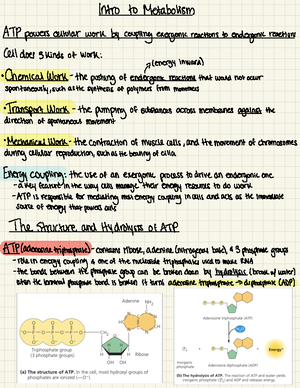 Intro to Metabolism
ATP powers cellular work by coupling exergonic reactions to endergonic reactions
Cell does 3 kinds of work:
(energy inward)
• Chemical Work - the pushing of endergonic reactions that would not occur
spontaneously, such as the synthesis of polymers from monomers
• Transport Work - the pumping of substances across membranes against the
direction of spontaneous movement
• Mechanical Work - the contraction of muscle cells, and the movement of chromosomes
during cellular reproduction, such as the beating of cilia
Energy coupling: the use of an exergonic process to drive an endergonic one
- a key feature in the way cells manage their energy resources to do work
- ATP is responsible for mediating most energy coupling in cells and acts as the immediate
source of energy that powers cells
The Structure and Hydrolysis of ATP
ATP (adenosine triphosphate) - contains ribose, adenine (nitrogenous base), & 3 phosphate groups
- role in energy coupling & one of the nucleoside triphosphates used to make RNA
- the bonds between the phosphate group can be broken down by hydrolysis
when the terminal phosphate bond is broken it turns adenosine triphosphate → diphosphate (ADP)
Adenine
NH2
Triphosphate group
(3 phosphate groups)
OH OH
Ribose
(a) The structure of ATP. In the cell, most hydroxyl groups of
phosphates are ionized (—O⁻).
Adenosine triphosphate (ATP)
H2O
Energy
Inorganic
phosphate
Adenosine diphosphate (ADP)
(b) The hydrolysis of ATP. The reaction of ATP and water yields
inorganic phosphate (Pi) and ADP and releases energy.